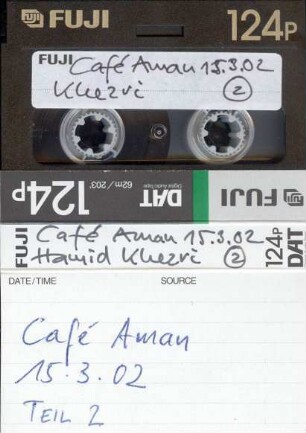 FUJI 124P
FUJI Café Aman 15.3.02
Khezri ②
124P 62m / 203' DAT Digital Audio Tape FUJI
FUJI Café Aman 15.3.02
Hamid Khezri ② 124P
DATE/TIME SOURCE
Café Aman
15.3.02
TEIL 2